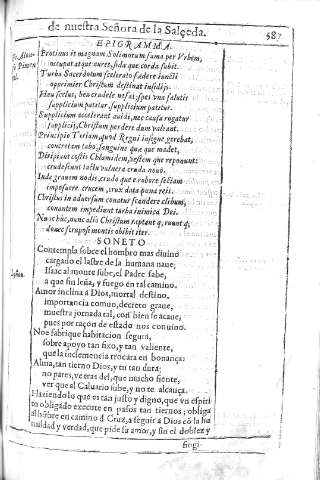 de nuestra Señora de la Salçeda.
587
EPIGRAMMA.
Protinus it magnam Solimorum fama per Vrbem,
occupat atque aures, sida que corda subit.
Turba Sacerdotum scelerato fœdere iuncti
opprimier Christum destinat insidijs.
Heu scelus, heu crudele nefas; spes vna salutis
supplicium patitur, supplicium patitur.
Supplicium accelerant auidi, nec causa rogatur
supplicij, Christum perdere dum valeant.
Principio Tyriam, quod Regni insigne gerebat,
concretam tabo, sanguine que madet,
Diripiunt costis Chlamidem, vestem que reponunt:
crudescunt lactu vulnera cruda nouo.
Inde grauem nodis, cruda que e robore sectam
imposuere crucem, crux data pœna reis.
Christus in aduersum conatur scandere cliuum,
conantem impediunt turba inimica Dei.
Nunc huc, nunc aliò Christum raptant q; ruunt q;
donec scrupei montis obibit iter.
SONETO
Contempla sobre el hombro mas diuino
cargado el lastre de la humana naue;
Isaac al monte sube, el Padre sabe,
a que su leña, y fuego en tal camino.
Amor inclina à Dios, mortal destino,
importancia comun, decreto graue,
nuestra jornada tal, con bien se acaue,
pues por raçon de estado nos conuino.
No e fabrique habitacion segura,
sobre apoyo tan fixo, y tan valiente,
que la inclemencia trocara en bonança:
Alma, tan tierno Dios, y tu tan dura;
no pares, ve tras del, que mucho siente,
ver que al Caluario sube, y no te alcança.
Haziendo lo que es tan justo y digno, que vn espiri
tu obligado execute en pasos tan tiernos; obliga
al hõbre en camino d Cruz, a seguir à Dios cõ la hu
mildad y verdad, que pide su amor, y sin el doblez y
fingi-